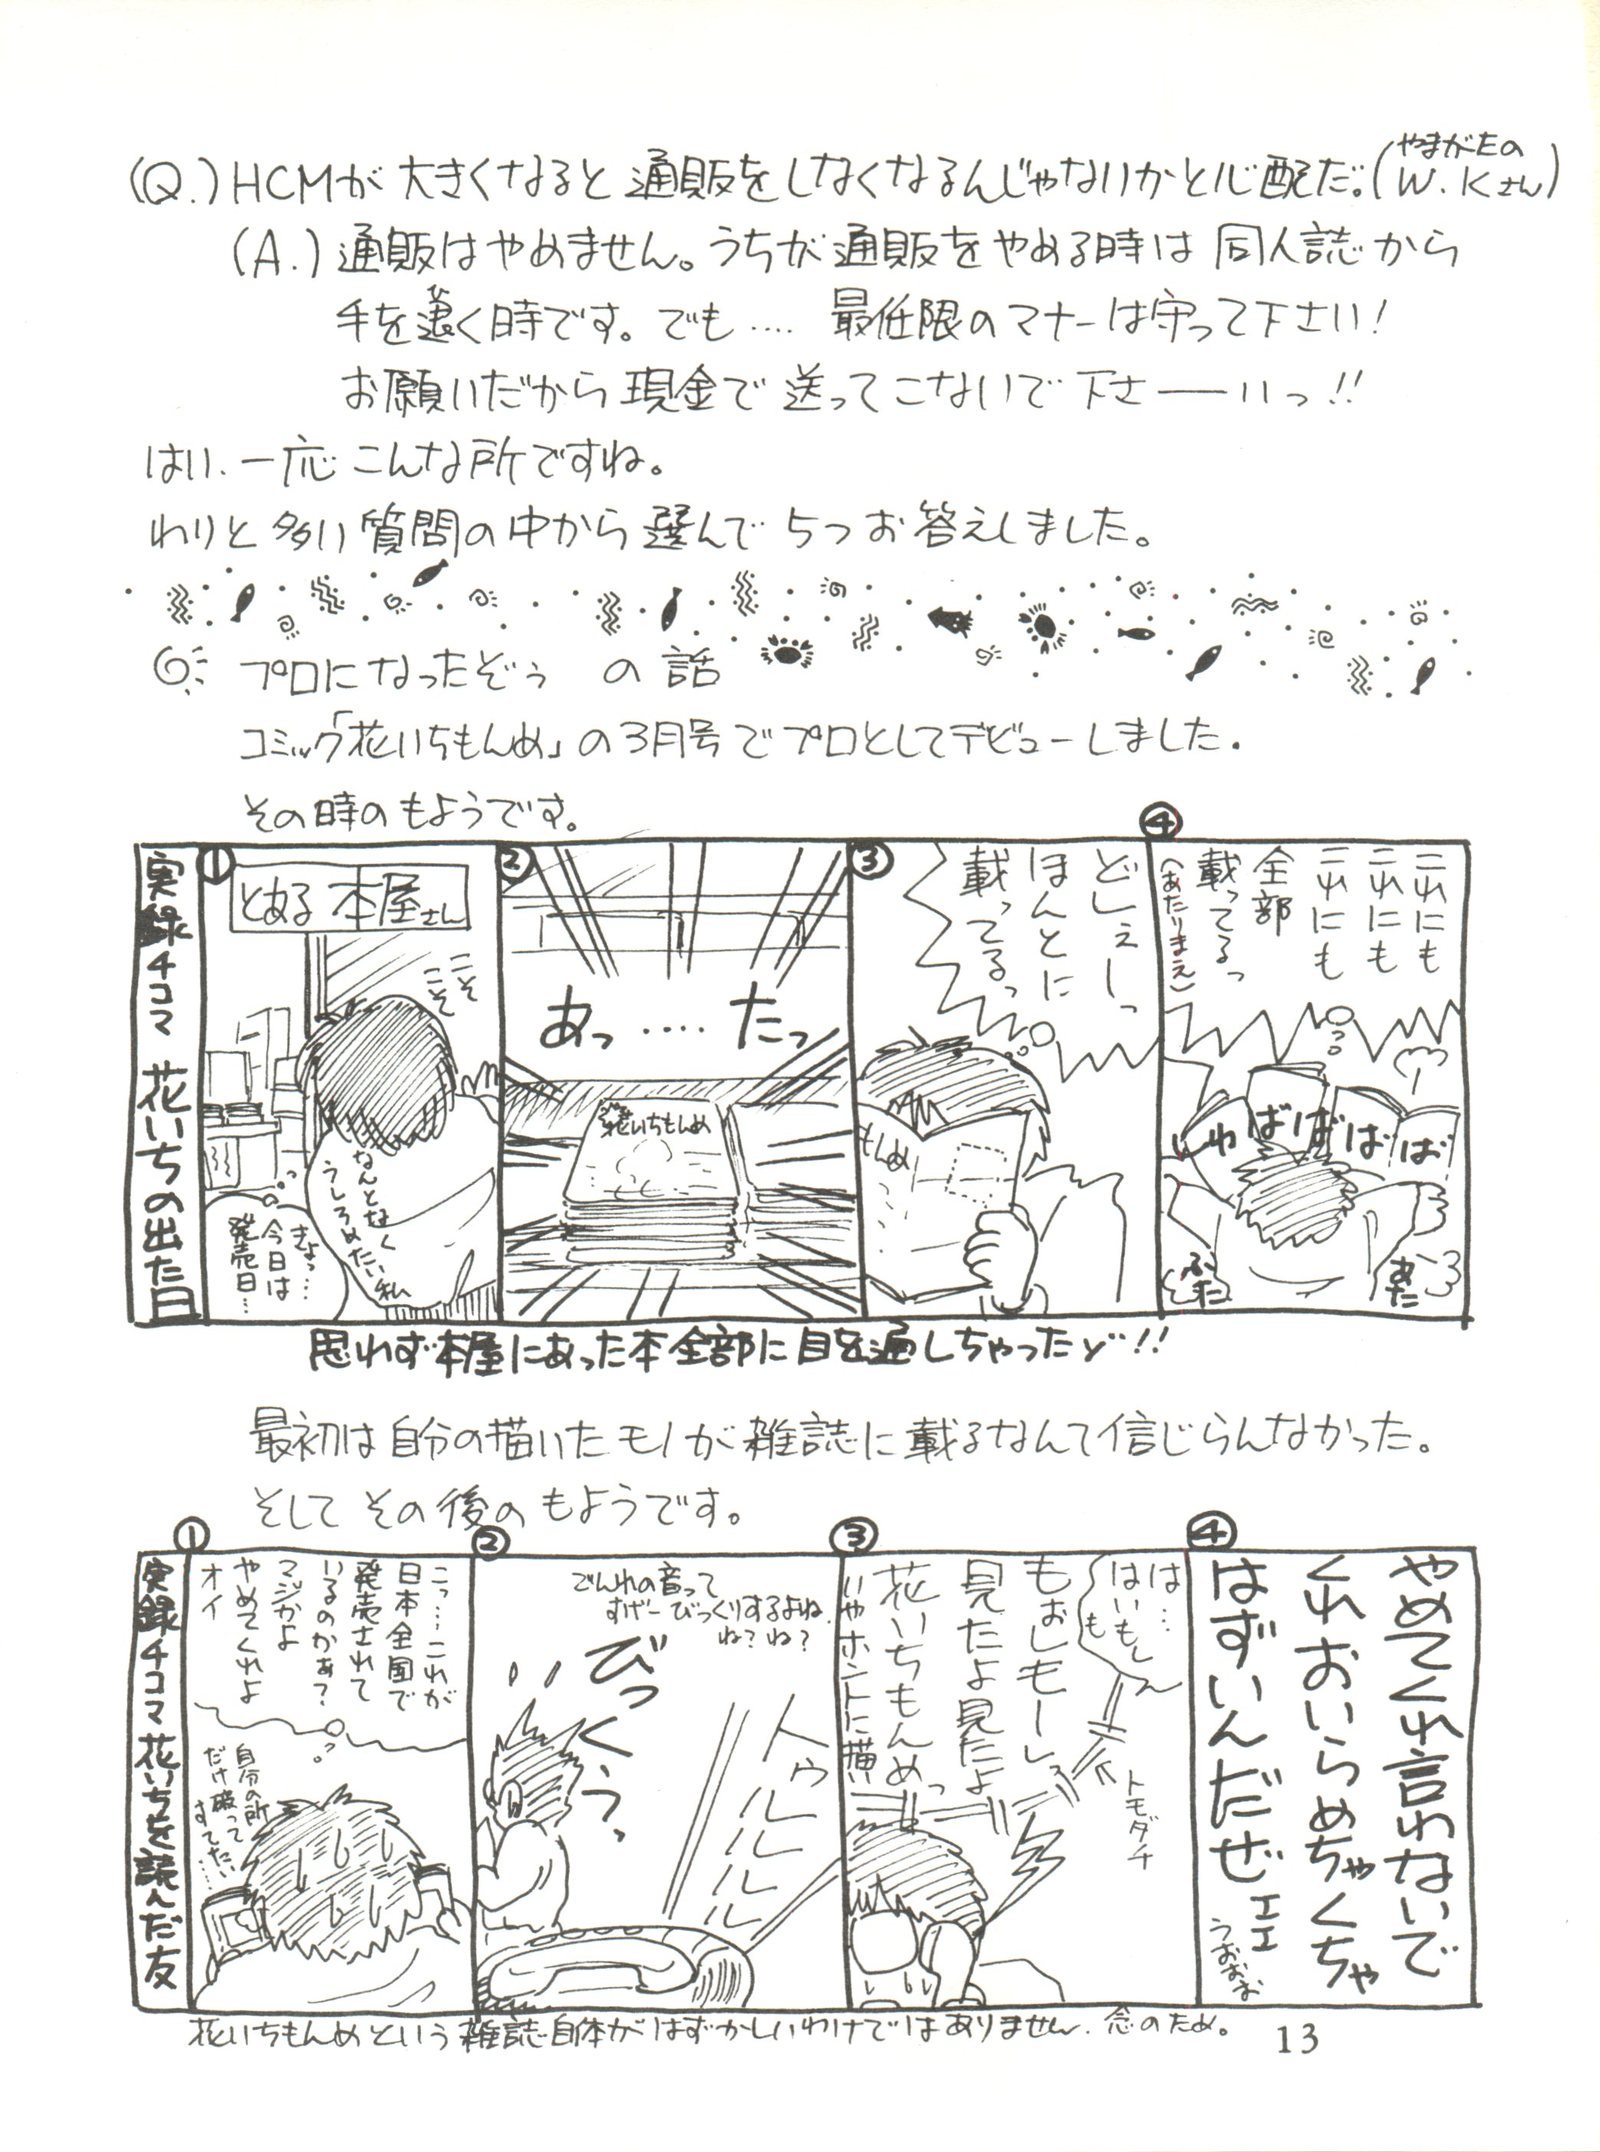 (Q.)HCMが大きくなると通販をしなくなるんじゃないかと心配だ。(やまがたの W.Kさん)
(A.)通販はやめません。うちが通販をやめる時は同人誌から
手を遠く時です。でも‥‥最低限のマナーは守って下さい!
お願いだから現金で送ってこないで下さーーいっ!!
はい、一応こんな所ですね。
わりと多い質問の中から選んで5つお答えしました。
プロになったぞぅ の話
コミック「花いちもんめ」の3月号でプロとしてデビューしました。
その時のもようです。
実録4コマ 花いちの出た日
①
とある本屋さん
こそ
こそ
なんとなく
うしろめたい私
きょっ…
今日は
発売日…
②
あっ‥‥たっ
花いちもんめ
③
どしぇーっ
ほんとに
載ってるっ
もんめ
④
これにも
これにも
これにも
全部
載ってるっ
(あたりまえ)
しゅばばばば
あた
ふた
思わず本屋にあった本全部に目を通しちゃったゾ!!
最初は自分の描いたモノが雑誌に載るなんて信じらんなかった。
そしてその後のもようです。
実録4コマ 花いちを読んだ友
①
こっ…これが
日本全国で
発売されて
いるのかぁ?
マジかよ
やめてくれよ
オイ
自分の所
だけ破って
すてたい…
②
でんわの音って
すげーびっくりするよね、
ね?ね?
びっくぅっ
トゥルルルルル
③
は…
はいもし
も
もぉしもーしっ
見たよ見たよ
花いちもんめっ
いやホントに描い
トモダチ
④
やめてくれ言わないで
くれおいらめちゃくちゃ
はずいんだぜェェ
うおおお
花いちもんめという雑誌自体がはずかしいわけではありません、念のため。
13